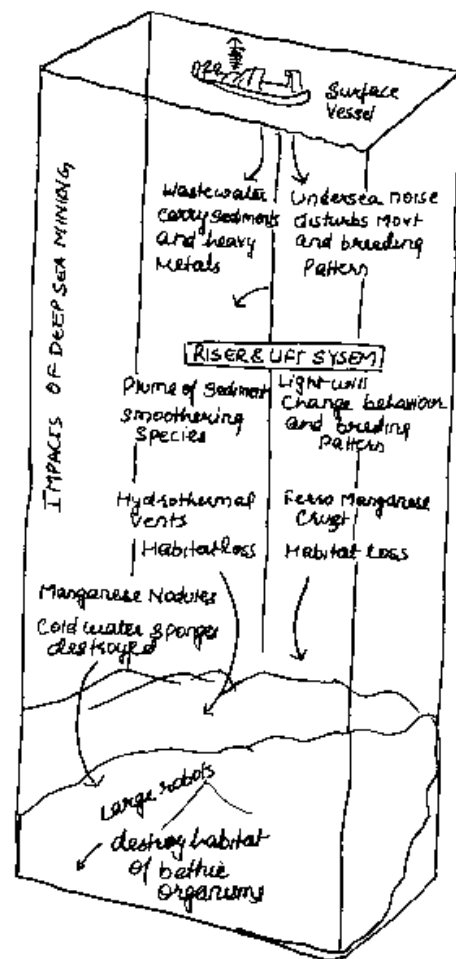 Surface
Vessel
IMPACTS OF DEEP SEA MINING
Wastewater
carry sediments
and heavy
Metals
Undersea noise
disturbs Movt
and breeding
Pattern
RISER & LIFT SYSEM
Plume of Sediment
smoothering
Species
Light will
Change behaviour
and breeding
Pattern
Hydrothermal
Vents
Habitat loss
Ferro Manganese
Crust
Habitat Loss
Manganese Nodules
Cold water sponges
destroyed
Large robots
destroy habitat
of bethic
organisms